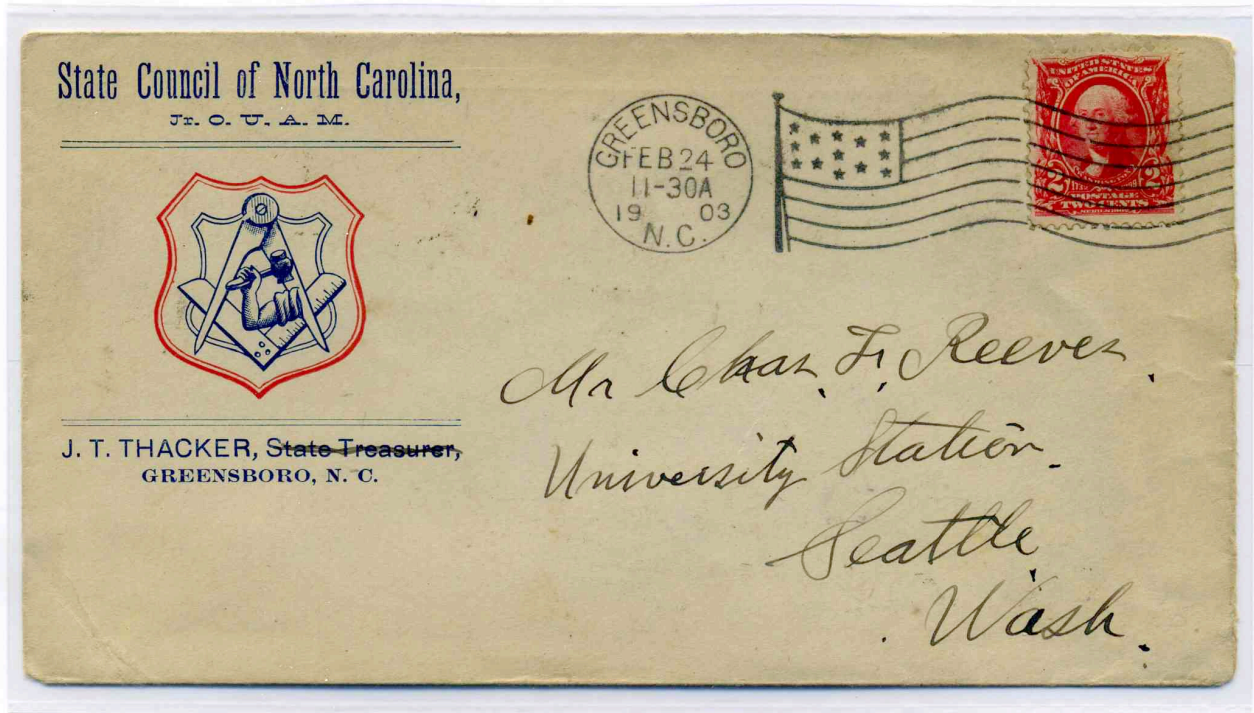 State Council of North Carolina,
Jr. O. U. A. M.
J. T. THACKER, State Treasurer,
GREENSBORO, N. C.
GREENSBORO
FEB 24
11-30A
19 03
N.C.
UNITED STATES
OF AMERICA
2 2
POSTAGE
TWO CENTS
Mr Chas. Fr. Reeves
University Station.
Seattle
Wash.